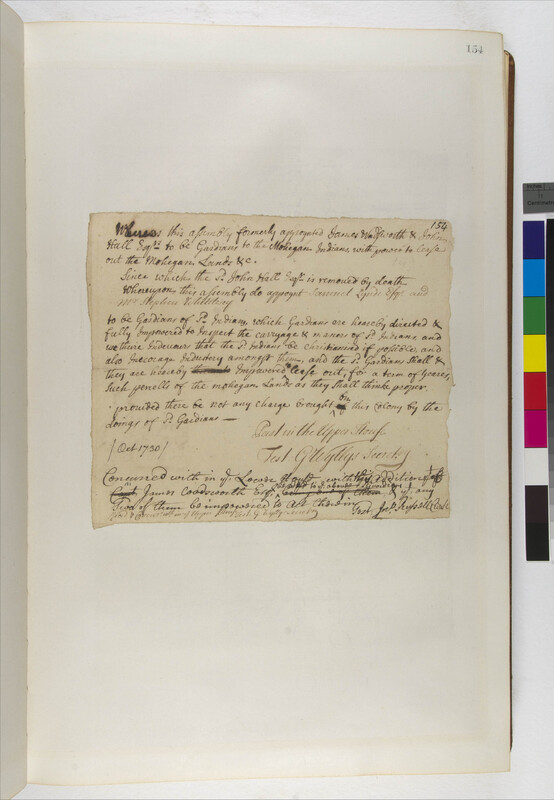 154
154
Whereas this assembly formerly appoynted James Wadsworth & John
Hall Esqrs to be Gardians to the Mohegan Indians, with power to lease
out the Mohegan Lands &c.
Since which the Sd. John Hall Esqr. is removed by death
Whereupon this assembly do appoynt Samuel Lynds Esqr and
Mr Stephen Whittlesey
to be Gardians of Sd. Indians, which Gardians are hereby directed &
fully Impowered to Inspect the carryage & maners of Sd. Indians, and
use there Indevours that the Sd. Indians be christianised if possible, and
also Incorage Industery amongst them, and the Sd. Gardians shall &
they are hereby Impowered lease out, for a term of yeares,
Such percell of the mohegan Lands as they shall thinke proper.
provided there be not any charge brought on this colony by the
doings of Sd. Gardians
Past in the Upper House
Test G Wyllys Secretry
[Oct 1730]
Concurred with in ye. Lower House with this addition
James Wadsworth Esqr. & yt. any
Two of them be impowered to act therein
Test Jno. Russell Clerk
Upper House Test G Wyllys Secretry